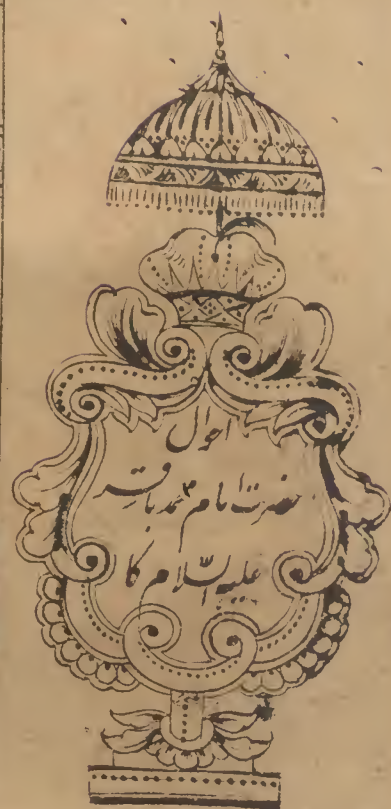 احوال
حضرت امام محمد باقر
علیہ السلام کا